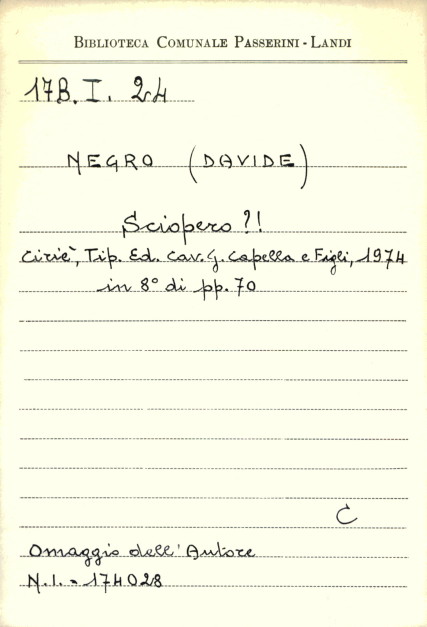 BIBLIOTECA COMUNALE PASSERINI - LANDI
17B. I. 24
NEGRO (DAVIDE)
Sciopero ?!
Ciriè, Tip. Ed. Cav. G. Capella e Figli, 1974
in 8° di pp. 70
C
Omaggio dell'Autore
N.I. - 174028